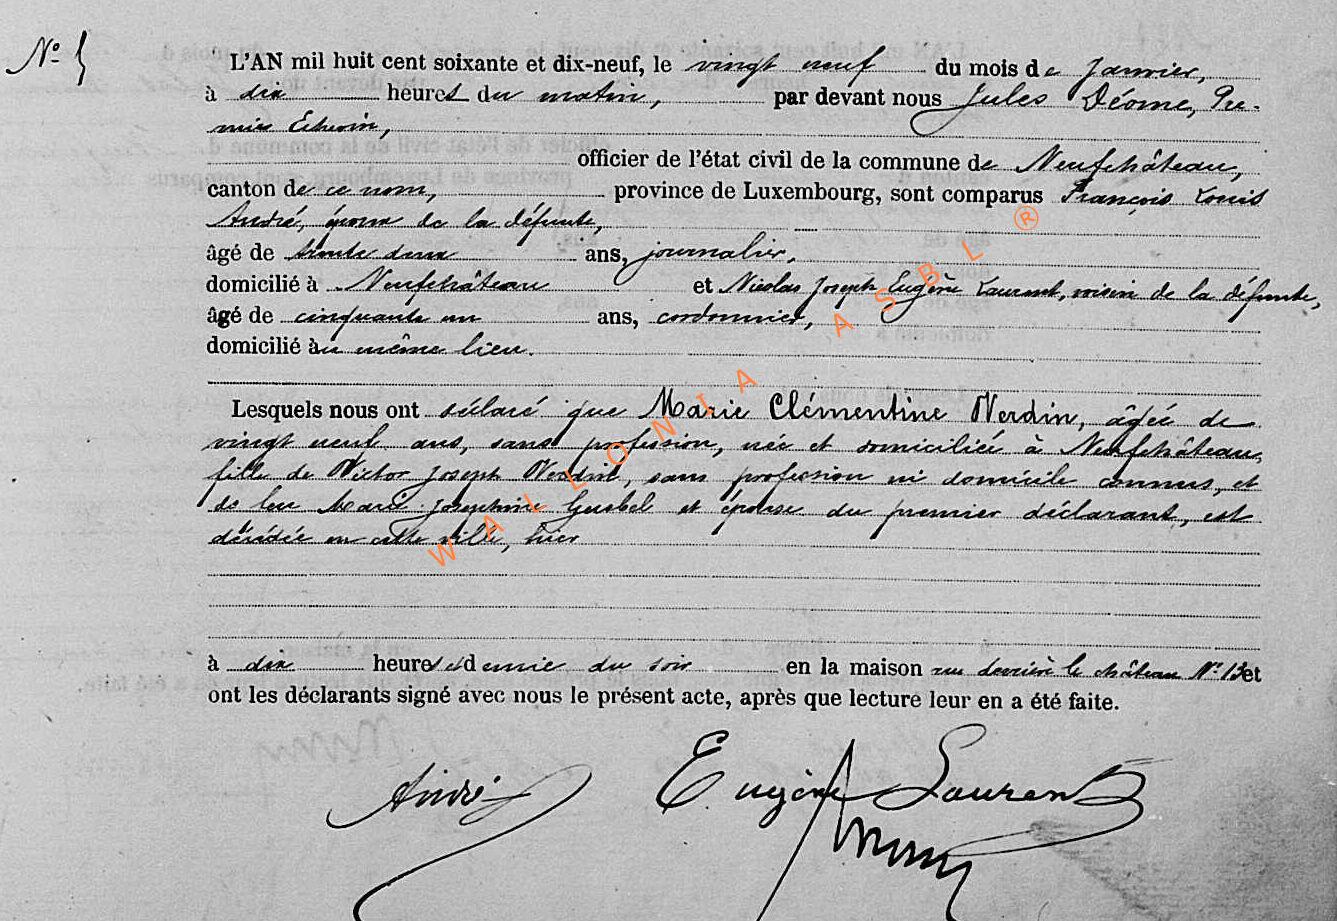 N° 5
L'AN mil huit cent soixante et dix-neuf, le vingt neuf du mois de Janvier,
à dix heures du matin, par devant nous Jules Déome, Pre-
mier Echevin,
officier de l'état civil de la commune de Neufchâteau,
canton de ce nom, province de Luxembourg, sont comparus François Louis
André, époux de la défunte,
âgé de trente deux ans, journalier,
domicilié à Neufchâteau et Nicolas Joseph Eugène Laurent, voisin de la défunte,
âgé de cinquante un ans, cordonnier,
domicilié au même lieu.
Lesquels nous ont déclaré que Marie Clémentine Verdin, âgée de
vingt neuf ans, sans profession, née et domiciliée à Neufchâteau,
fille de Victor Joseph Verdin, sans profession ni domicile connus, et
de feue Marie Josephine et épouse du premier déclarant, est
décédée en cette ville, hier
à dix heures et demie du soir en la maison rue derrière le château N° 13 et
ont les déclarants signé avec nous le présent acte, après que lecture leur en a été faite.
André
Eugène Laurent
WALLONIA ASBL ®